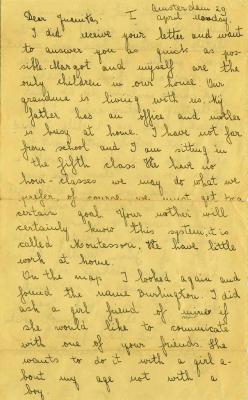 Amsterdam 29
April Monday.
Dear Juanita,
I did receive your letter and want
to answer you as quick as pos-
sible. Margot and myself are the
only children in our house. Our
grandma is living with us. My
father has an office and mother
is busy at home. I have not far
from school and I am sitting in
the fifth class. We have no
hour-classes we may do what we
prefer, of course we must get to a
certain goal. Your mother will
certainly know this system, it is
called Montessori. We have little
work at home.
On the map I looked again and
found the name Burlington. I did
ask a girl friend of mine if
she would like to communicate
with one of your friends. She
wants to do it with a girl a-
bout my age not with a
boy